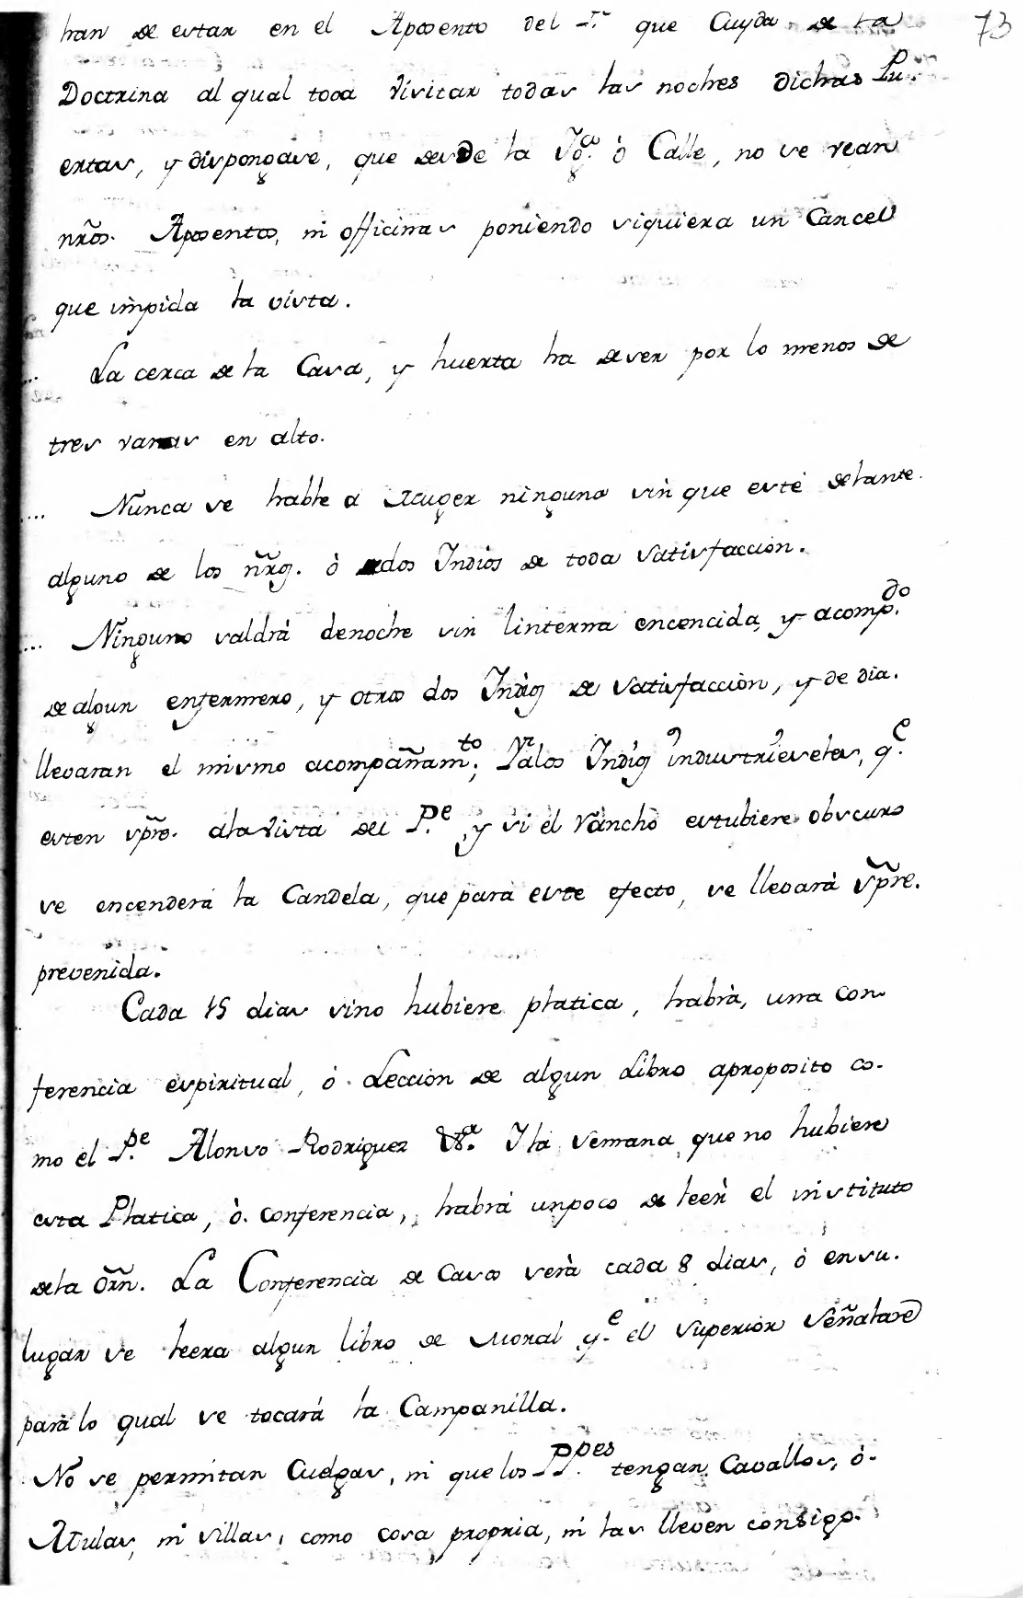 73
han de estar en el Aposento del P.e que Cuyda de la
Doctrina al qual toca visitar todas las noches dichas Pu-
ertas, y dispongase, que desde la Yg.a ò Calle, no se vean
nr̃os. Aposentos, ni officinas poniendo siquiera un Cancel
que impida la vista.
La cerca de la Casa, y huerta ha de ser por lo menos de
tres varas en alto.
.... Nunca se hable a Muger ninguna sin que esté delante
alguno de los nr̃os. ò dos Indios de toda satisfaccion.
... Ninguno saldrá denoche sin linterna encencida, y acomp.do
de algun enfermero, y otros dos Indios de satisfacción, y de dia.
llevaran el mismo acompañam.to; Y alos Indios industrieseles, q.e
esten spr̃e. ala vista del P.e, y si el Rancho estubiere obscuro
se encenderá la Candela, que para este efecto, se llevará spr̃e.
prevenida.
Cada 15 dias sino hubiere platica, habrà, una con-
ferencia espiritual, ò Lección de algun Libro aproposito co-
mo el P.e Alonso Rodriguez &.a Y la semana que no hubiere
esta Platica, ò conferencia, habrá unpoco de leer el instituto
dela Or̃n. La Conferencia de Casos serà cada 8 dias, ò ensu-
lugar se leera algun libro de Moral q.e el Superior señalare
para lo qual se tocará la Campanilla.
No se permitan Cuelgas, ni que los PP.pes tengan Cavallos, ò-
Mulas, ni sillas, como cosa propria, ni las lleven consigo.